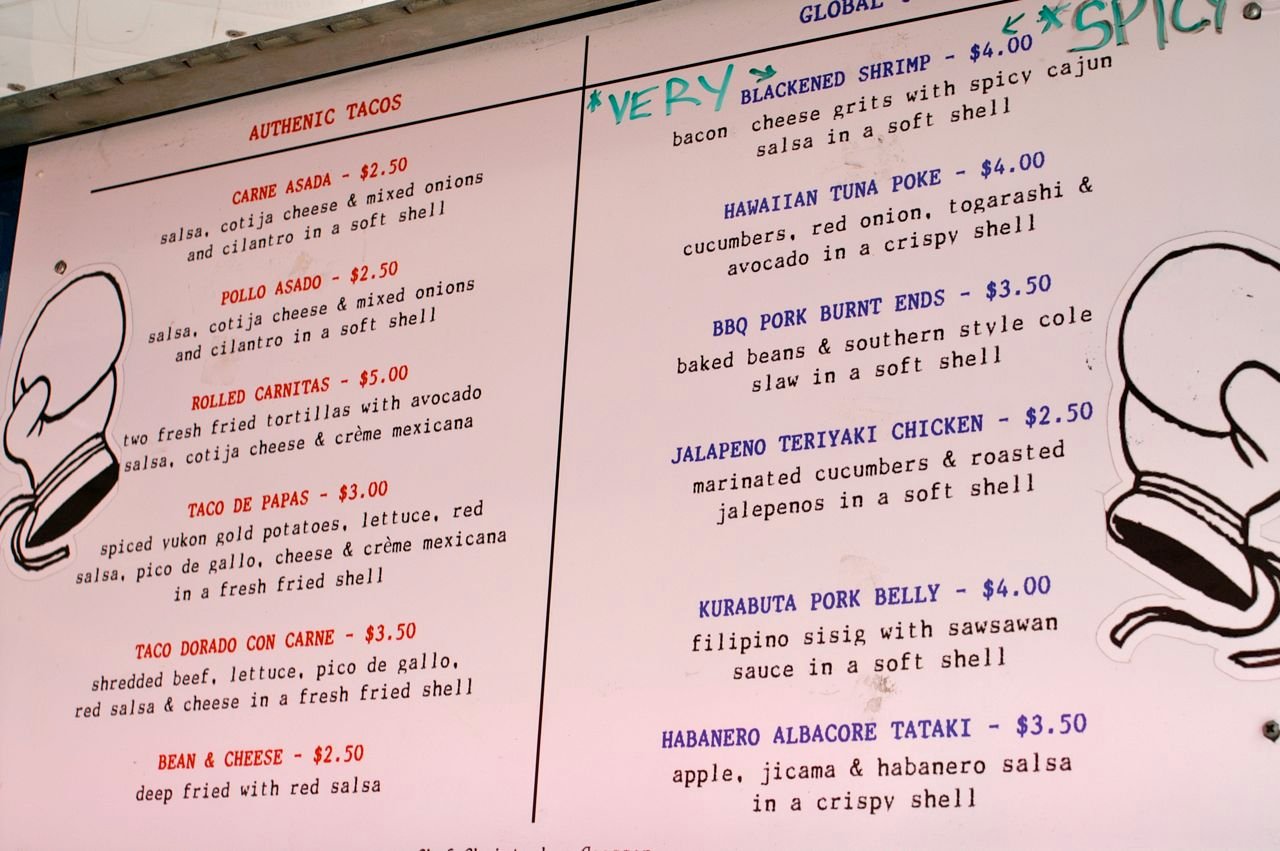 AUTHENIC TACOS
CARNE ASADA - $2.50
salsa, cotija cheese & mixed onions
and cilantro in a soft shell
POLLO ASADO - $2.50
salsa, cotija cheese & mixed onions
and cilantro in a soft shell
ROLLED CARNITAS - $5.00
two fresh fried tortillas with avocado
salsa, cotija cheese & crème mexicana
TACO DE PAPAS - $3.00
spiced yukon gold potatoes, lettuce, red
salsa, pico de gallo, cheese & crème mexicana
in a fresh fried shell
TACO DORADO CON CARNE - $3.50
shredded beef, lettuce, pico de gallo,
red salsa & cheese in a fresh fried shell
BEAN & CHEESE - $2.50
deep fried with red salsa
GLOBAL
*SPICY
*VERY
BLACKENED SHRIMP - $4.00
bacon cheese grits with spicy cajun
salsa in a soft shell
HAWAIIAN TUNA POKE - $4.00
cucumbers, red onion, togarashi &
avocado in a crispy shell
BBQ PORK BURNT ENDS - $3.50
baked beans & southern style cole
slaw in a soft shell
JALAPENO TERIYAKI CHICKEN - $2.50
marinated cucumbers & roasted
jalepenos in a soft shell
KURABUTA PORK BELLY - $4.00
filipino sisig with sawsawan
sauce in a soft shell
HABANERO ALBACORE TATAKI - $3.50
apple, jicama & habanero salsa
in a crispy shell